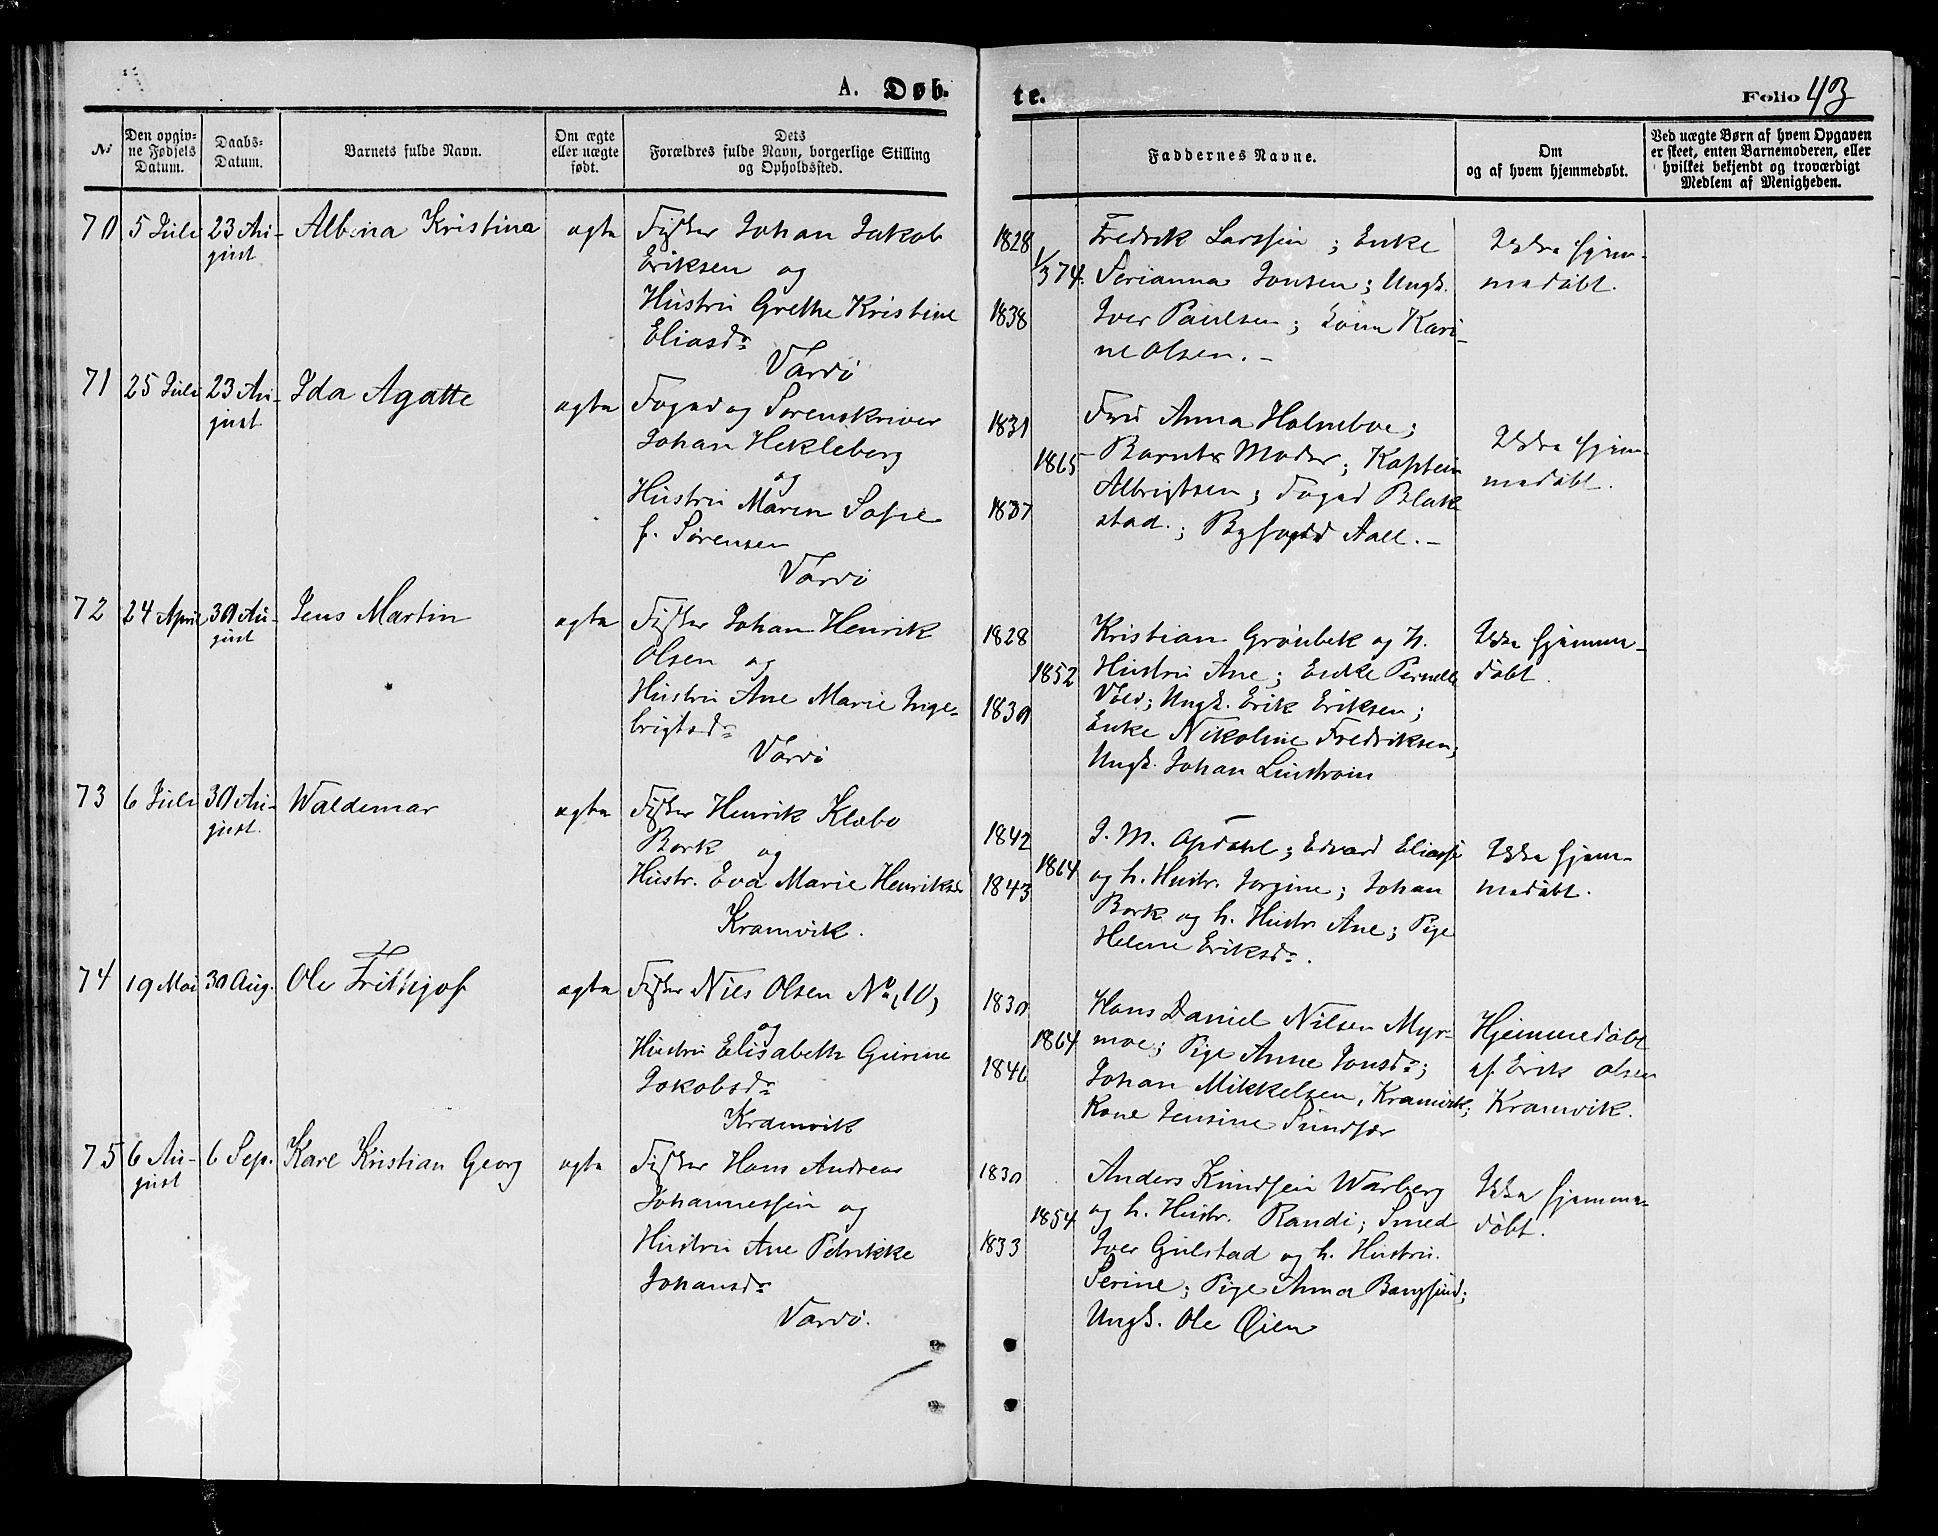 A. Døb-
te.
Folio 43
No
Den opgiv-
ne Fødsels
Datum.
Daabs-
Datum.
Barnets fulde Navn.
Om ægte
eller uægte
født.
Dets
Forældres fulde Navn, borgerlige Stilling
og Opholdssted.
Faddernes Navne.
Om
og af hvem hjemmedøbt.
Ved uægte Børn af hvem Opgaven
er skeet, enten Barnemoderen, eller
hvilket bekjendt og troværdigt
Medlem af Menigheden.
70
5 Juli
23 Au-
gust
Albina Kristina
ægte
Fisker Johan Jakob
Eriksen og
Hustru Grethe Kristine
Eliasdr
Vardø
1828
1/3 74.
1838
Fredrik Larssen; Enke
Serianna Jonsen; Ungk.
Iver Paulsen; Kari-
ne Olsen. -
Ikke hjem-
medøbt.
71
25 Juli
23 Au-
gust
Ida Agatte
ægte
Foged og Sorenskriver
Johan Hekleberg
og
Hustru Maren Sofie
f. Sørensen
Vardø
1831
1865
1837
Fru Anna Holmboe;
Barnets Moder; Kaptein
Albrigtsen; Foged Blak
stad.; Byfoged Aall. -
Ikke hjem-
medøbt.
72
24 April
30 Au-
gust
Jens Martin
ægte
Fisker Johan Henrik
Olsen og
Hustru Ane Marie Inge-
brigtsdr
Vardø
1828
1852
1830
Kristian Grønbek og h.
Hustru Ane; Enke Pernelle
Vold; Ungk. Erik Eriksen;
Enke Nikoline Fredriksen;
Ungk. Johan Lindstrøm
Ikke hjemme-
døbt.
73
6 Juli
30 Au-
gust.
Waldemar
ægte
Fisker Henrik Klæbo
Bork og
Hustr. Eva Marie Henriksdr
Kramvik.
1842
1864
1843
J. M. Opdahl; Edvard Eliass.
og h. Hustr. Jorgine; Johan
Bork og h. Hustr. Ane; Pige
Helene Eriksdr.
Ikke hjem-
medøbt.
74
19 Mai
30 Aug.
Ole Frithjof
ægte
Fisker Niels Olsen No (10)
og
Hustru Elisabeth Gurine
Jakobsdr
Kramvik
1830
1864
1846
Hans Daniel Nilsen Myr-
moe; Pige Anne Jonsdr;
Johan Mikkelsen, Kramvik;
Kone Jensine Sundfær
Hjemmedøbt
af Erik Olsen
Kramvik.
75
6 Au-
gust
6 Sep.
Karl Kristian Georg
ægte
Fisker Hans Andreas
Johannessen og
Hustru Ane Petrikke
Johansdr
Vardø.
1830
1854
1833
Anders Knudsen Warberg
og h. Hustr. Randi; Smed
Iver Gulstad og h. Hustru
Serine; Pige Anna Bangsund;
Ungk. Ole Øien
Ikke hjemme-
døbt.